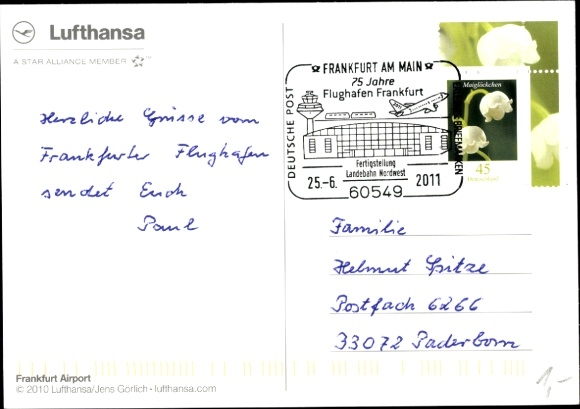 Lufthansa
A STAR ALLIANCE MEMBER
Herzliche Grüsse vom
Frankfurter Flughafen
sendet Euch
Paul
FRANKFURT AM MAIN
75 Jahre
Flughafen Frankfurt
DEUTSCHE POST
Fertigstellung
Landebahn Nordwest
25.-6. 2011
60549
Maiglöckchen
45
Deutschland
Familie
Helmut Spitze
Postfach 6266
33072 Paderborn
Frankfurt Airport
© 2010 Lufthansa/Jens Görlich · lufthansa.com
1,-